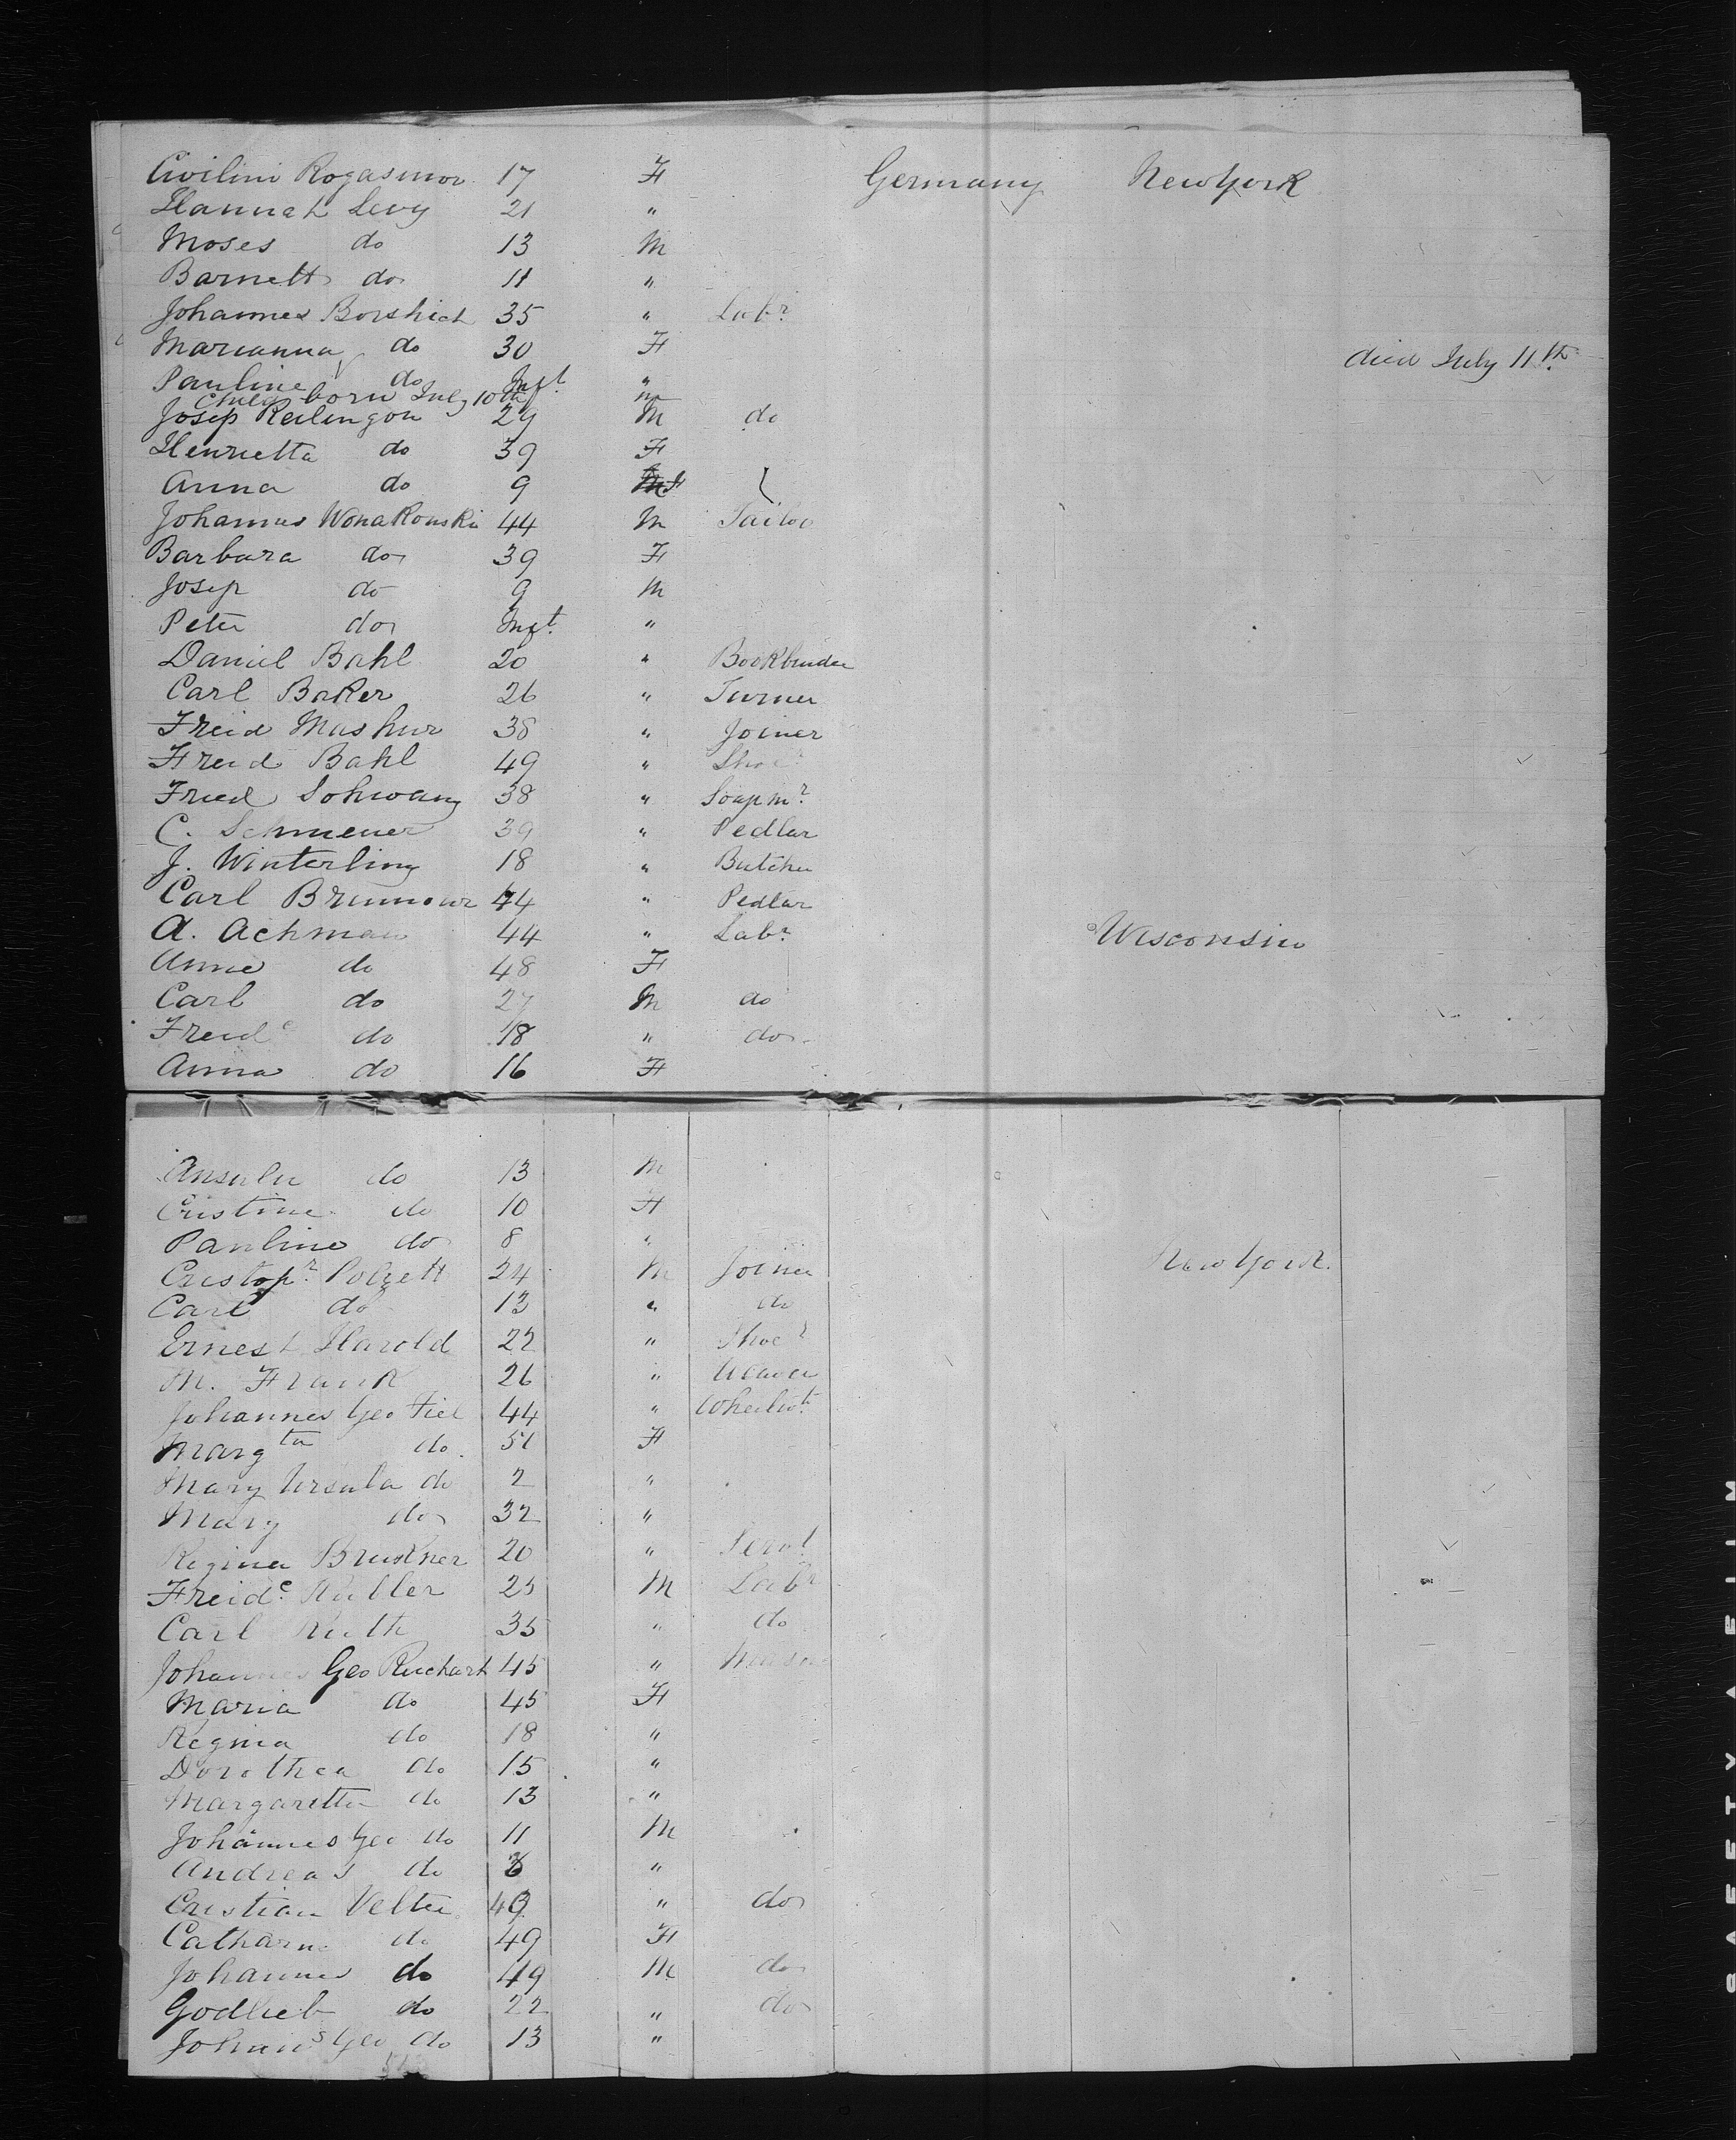 Civilini Rogasmor 17 F Germany New York
Hannah Levy 21 "
Moses do 13 M
Barnett do 11 "
Johannes Borshich 35 " Labr
Marianna do 30 F died July 11th
Pauline do Inft "
Child born July 10th m
Josep Reilengon 29 M do
Henrietta do 39 F
Anna do 9 F
Johannes WonaKousKi 44 M Tailor
Barbara do 39 F
Josep do 9 M
Peter do Inft. "
Daniel Bahl 20 " Bookbinder
Carl BaKer 26 " Turner
Freid Mashur 38 " Joiner
Freid Bahl 49 " Shoer
Fried Sohwang 38 " Soap mr
C. Schmener 39 " Pedlar
J. Winterling 18 " Butcher
Carl Brumour 44 " Pedlar
A. Achman 44 " Labr Wisconsin
Anne do 48 F
Carl do 27 M do
Freidc do 18 " do
Anna do 16 F
Ansulu do 13 M
Cristine do 10 F
Pauline do 8 "
Cristopr Polzett 24 M Joiner New York
Carl do 13 " do
Ernest Harold 22 " Shoer
M. Frank 26 " Weaver
Johannes Geo Fiel 44 " Wheelwt.
Margta do 51 F
Mary Ursula do 2 "
Mary do 32 "
Regina Bruskner 20 " Servt
Freidc. Kubler 25 M Labr
Carl Ruth 35 " do
Johannes Geo Ruchart 45 " Mason
Maria do 45 F
Regina do 18 "
Dorothea do 15 "
Margaretta do 13 "
Johannes Geo do 11 M
Andreas do "
Cristian Velter 49 " do
Catharne do 49 F
Johannes do 49 M do
Godlieb do 22 " do
Johans Geo do 13 "
SAFETY FILM